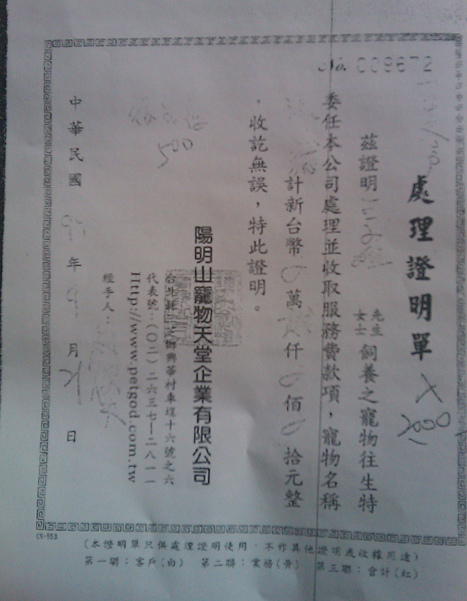 No. 009672
處理證明單
茲證明 先生 女士 飼養之寵物往生特
委任本公司處理並收取服務費款項,寵物名稱
計新台幣 0 萬 仟 0 佰 0 拾元整
,收訖無誤,特此證明。
500
2000
陽明山寵物天堂企業有限公司
台北縣三芝鄉興華村車埕十六號之六
代表號:(〇二)二六三七-二八一一
Http://www.petgod.com.tw
經手人:
中華民國 年 9 月 日
(本證明單只供處理證明使用,不作其他證明或收據用途)
第一聯:客戶(白) 第二聯:業務(黃) 第三聯:會計(紅)